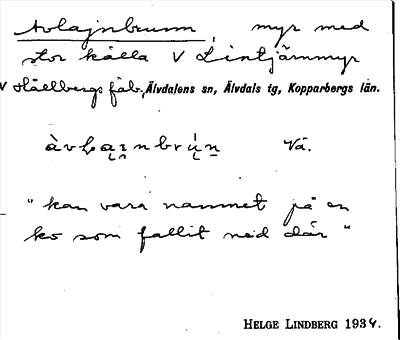 Avlajnbrunn, myr med
stor källa V Lintjärnmyr
V Hållbergs fäb., Älvdalens sn, Älvdals tg, Kopparbergs län.
Vä.
"kan vara namnet på en
ko som fallit ned där"
HELGE LINDBERG 1934.